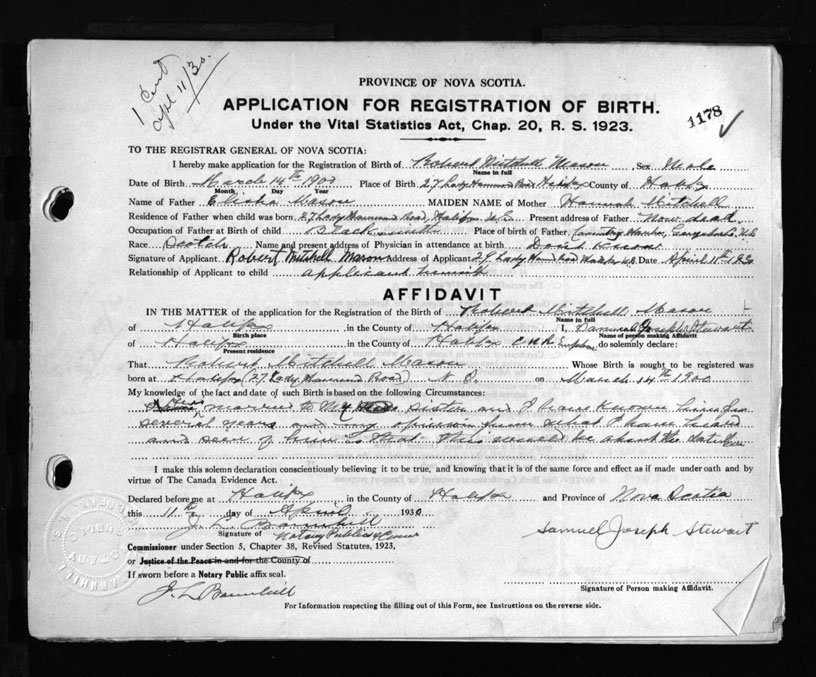 1 Cent
Apl 11/30.
PROVINCE OF NOVA SCOTIA.
APPLICATION FOR REGISTRATION OF BIRTH.
1178
Under the Vital Statistics Act, Chap. 20, R. S. 1923.
TO THE REGISTRAR GENERAL OF NOVA SCOTIA:
I hereby make application for the Registration of Birth of Robert Mitchell Mason, Sex Male
Name in full
Date of Birth March 14th 1900 Place of Birth 27 Lady Hammond Road Halifax County of Halifax
Month Day Year
Name of Father Elisha Mason MAIDEN NAME of Mother Hannah Mitchell
Residence of Father when child was born 27 Lady Hammond Road, Halifax N.S. Present address of Father Now dead.
Occupation of Father at Birth of child Blacksmith Place of birth of Father Country Harbor, N.S.
Race Scotch Name and present address of Physician in attendance at birth Don't Know
Signature of Applicant Robert Mitchell Mason address of Applicant 27 Lady Ham Road Halifax N.S. Date April 11th 1930
Relationship of Applicant to child applicant himself
AFFIDAVIT
IN THE MATTER of the application for the Registration of the Birth of Robert Mitchell Mason
Name in full
of Halifax, in the County of Halifax I, Samuel Joseph Stewart
Birth place Name of person making Affidavit
of Halifax, in the County of Halifax C.N.R. do solemnly declare:
Present residence
That Robert Mitchell Mason Whose Birth is sought to be registered was
born at Halifax (27 Lady Hammond Road) N. S. on March 14th 1900
My knowledge of the fact and date of such Birth is based on the following Circumstances:
married to my sister and I have known him for
several years and my opinion from what I have heard
and seen of him is that this would be about the date
I make this solemn declaration conscientiously believing it to be true, and knowing that it is of the same force and effect as if made under oath and by
virtue of The Canada Evidence Act.
Declared before me at Halifax, in the County of Halifax and Province of Nova Scotia
this 11th day of April 1930
J. L. Barnhill
Samuel Joseph Stewart
Signature of Notary Public
Commissioner under Section 5, Chapter 38, Revised Statutes, 1923,
or Justice of the Peace in and for the County of
If sworn before a Notary Public affix seal.
Signature of Person making Affidavit.
J. L. Barnhill
For Information respecting the filling out of this Form, see Instructions on the reverse side.